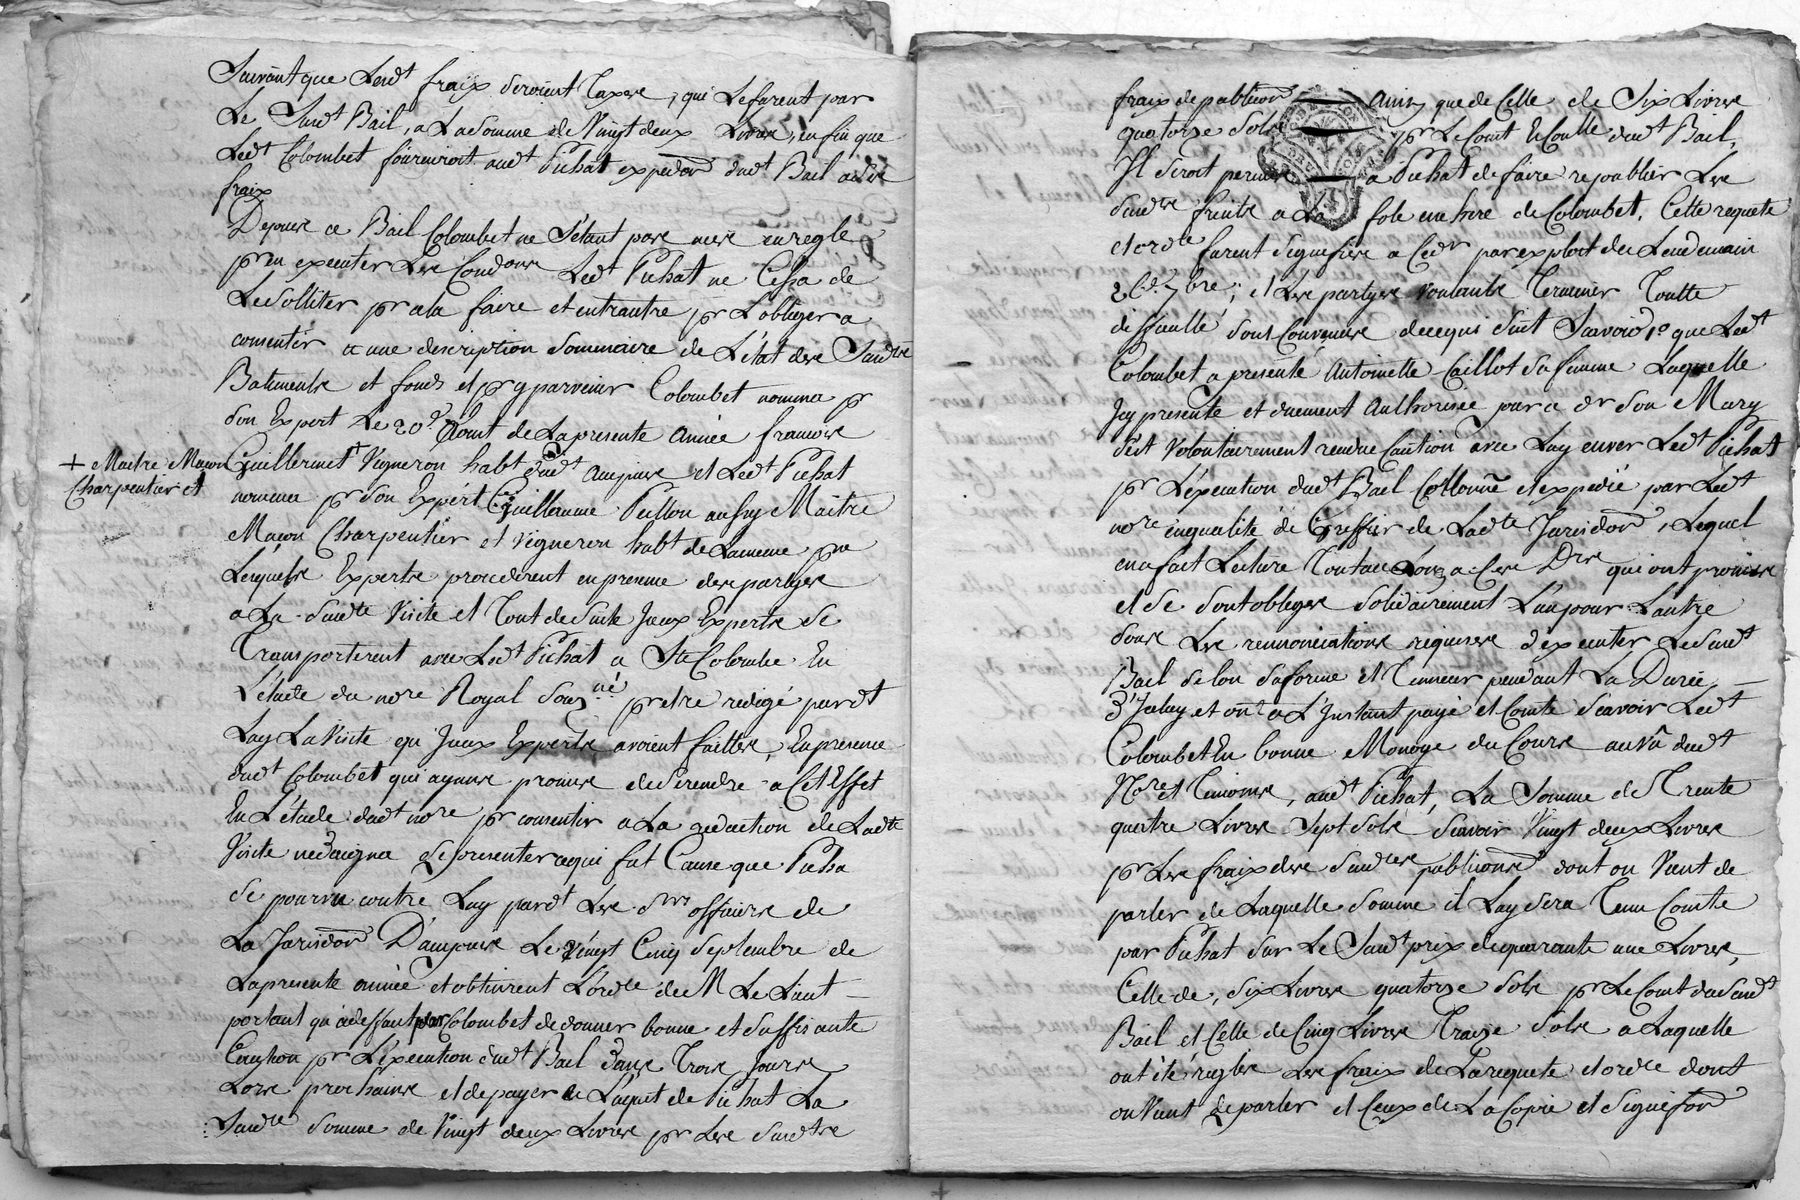 Suivant que Lesdt fraix seroient Taxes, qui Le furent par
Le Susdt Bail, a La somme de Vingt deux Livres, enfin que
Ledt Colombet fourniroit audt Pichat expedon dudt Bail a ses
fraix
Depuis ce Bail Colombet ne s'etant pas mis en regle
pr en executer Les Condons Ledt Pichat ne Cessa de
Le solliter pr a la faire et entrautre pr L'obliger a
consentir a une description sommaire de L'état des Susdts
Batiments et fonds et pr y parvenir Colombet nomma pr
son Expert Le 20e Aout de La presente Année francois
Guillermet + Vigneron habt dudt Ampuis et Ledt Pichat
+ Maitre Macon
Charpentier et
nomma pr son Expert Guillaume Pillon aussy Maitre
Macon Charpentier et Vigneron habt de La meme psse
Lesquels Experts procederent en presence des partyes
a La Susdte Visite et Tout de Suite Iceux Experts se
Transporterent avec Ledt Pichat a Ste Colombe En
L'étude du nore Royal Sousné pr etre redigé pardt
Luy La Visite qu'Iceux Experts avoient faitte, En presence
dudt Colombet qui ayant promis de se rendre a Cet Effet
En L'étude dudt nore pr consentir a La redaction de Ladte
Visite ne daigna se presenter ce qui fut Cause que Picha
se pourvu contre Luy pardt Les Srs officiers de
La Jurisdon D'ampuis Le Vingt Cinq Septembre de
La presente année et obtinrent L'ordce de M Le Lieut
portant qu'a deffaut par Colombet de donner bonne et suffisante
Caution pr L'execution dudt Bail dans Trois Jours
Lors prochains et de payer a L'aquit de Pichat La
Susdte somme de Vingt deux Livres pr Les Susdts
fraix de publicon Ainsy que de Celle de Six Livres
quatorze Sols pr Le Cout Et Coulle dudt Bail,
Il seroit permis a Pichat de faire republier Les
Susdts fruits a La fole enchere de Colombet. Cette requete
et ordce furent signifiées a Cedr par exploit du Lendemain
26e 7bre; et Les partyes voulants Terminer Toutte
difficulté sont Convenues de ce qui suit Scavoir 1o que Ledt
Colombet a presenté Antoinette Caillot sa femme Laquelle
Icy presente et duement Authorisée par ce dr son Mary
s'est Volontairement rendue Caution avec Luy enver Ledt Pichat
pr L'execution dudt Bail Collonné et expedié par Ledt
nore en qualité de Greffier de Ladte Jurisdon, Lequel
en a fait Lecture Tout au Long a Ces Drs qui ont promis
et se sont obliges Solidairement L'un pour L'autre
sous Les renonciations requises d'executer Le Susdt
Bail selon sa forme et Tenneur pendant La Durée
d'Iceluy et ont a L'Instant payé et Comté Scavoir Ledt
Colombet En bonne Monoye du Cours au Vû dudt
Nore et Temoins, audt Pichat, La Somme de Trente
quatre Livres Sept Sols Scavoir Vingt deux Livres
pr Les fraix des Susdtes publicons dont on Vient de
parler de Laquelle Somme il Luy sera Tenu Comte
par Pichat sur Le Susdt prix de quarante une Livres,
Celle de, six Livres quatorze Sols pr Le Cout du Susdt
Bail et Celle de Cinq Livres Traize Sols a Laquelle
ont été reglés Les fraix de La requete et ordce dont
on Vient de parler et Ceux de La Copie et Signifon